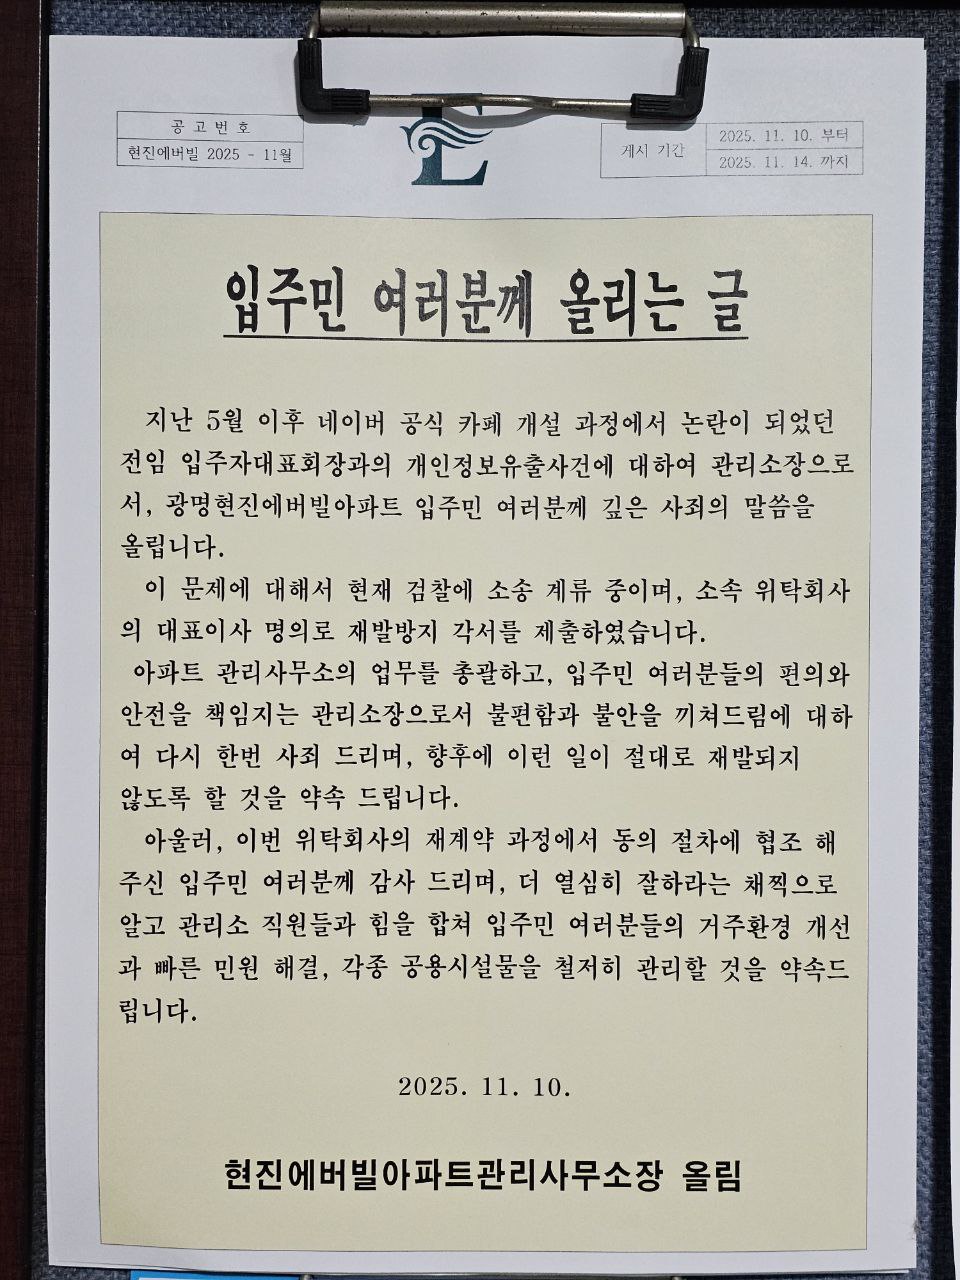 공 고 번 호
현진에버빌 2025 - 11월
게시 기간
2025. 11. 10. 부터
2025. 11. 14. 까지
입주민 여러분께 올리는 글
지난 5월 이후 네이버 공식 카페 개설 과정에서 논란이 되었던
전임 입주자대표회장과의 개인정보유출사건에 대하여 관리소장으로
서, 광명현진에버빌아파트 입주민 여러분께 깊은 사죄의 말씀을
올립니다.
이 문제에 대해서 현재 검찰에 소송 계류 중이며, 소속 위탁회사
의 대표이사 명의로 재발방지 각서를 제출하였습니다.
아파트 관리사무소의 업무를 총괄하고, 입주민 여러분들의 편의와
안전을 책임지는 관리소장으로서 불편함과 불안을 끼쳐드림에 대하
여 다시 한번 사죄 드리며, 향후에 이런 일이 절대로 재발되지
않도록 할 것을 약속 드립니다.
아울러, 이번 위탁회사의 재계약 과정에서 동의 절차에 협조 해
주신 입주민 여러분께 감사 드리며, 더 열심히 잘하라는 채찍으로
알고 관리소 직원들과 힘을 합쳐 입주민 여러분들의 거주환경 개선
과 빠른 민원 해결, 각종 공용시설물을 철저히 관리할 것을 약속드
립니다.
2025. 11. 10.
현진에버빌아파트관리사무소장 올림